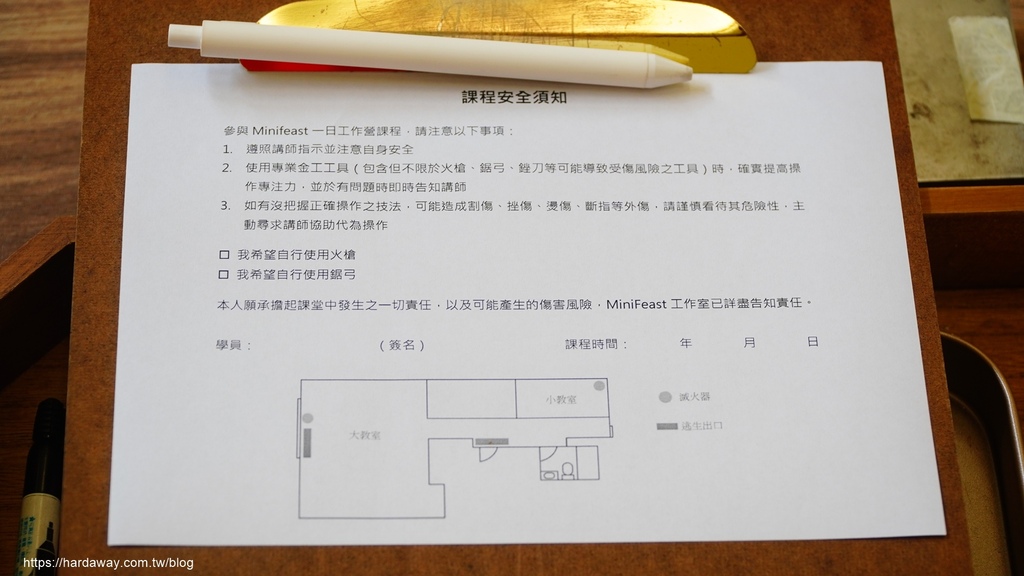 課程安全須知
參與 Minifeast 一日工作營課程，請注意以下事項：
1. 遵照講師指示並注意自身安全
2. 使用專業金工工具（包含但不限於火槍、鋸弓、銼刀等可能導致受傷風險之工具）時，確實提高操
作專注力，並於有問題時即時告知講師
3. 如有沒把握正確操作之技法，可能造成割傷、挫傷、燙傷、斷指等外傷，請謹慎看待其危險性，主
動尋求講師協助代為操作
☐ 我希望自行使用火槍
☐ 我希望自行使用鋸弓
本人願承擔起課堂中發生之一切責任，以及可能產生的傷害風險，MiniFeast 工作室已詳盡告知責任。
學員： （簽名） 課程時間： 年 月 日
小教室
滅火器
大教室
逃生出口
https://hardaway.com.tw/blog